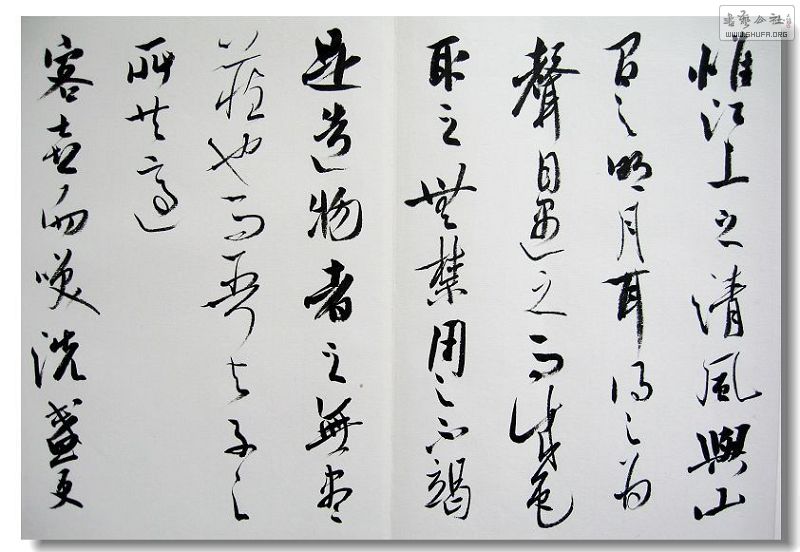 惟江上之清風與山
間之明月耳得之為
聲目遇之而成色
取之無禁用之不竭
是造物者之無盡
藏也而吾与子之
所共適
客喜而笑洗盞更
書藝公社
WWW.SHUFA.ORG